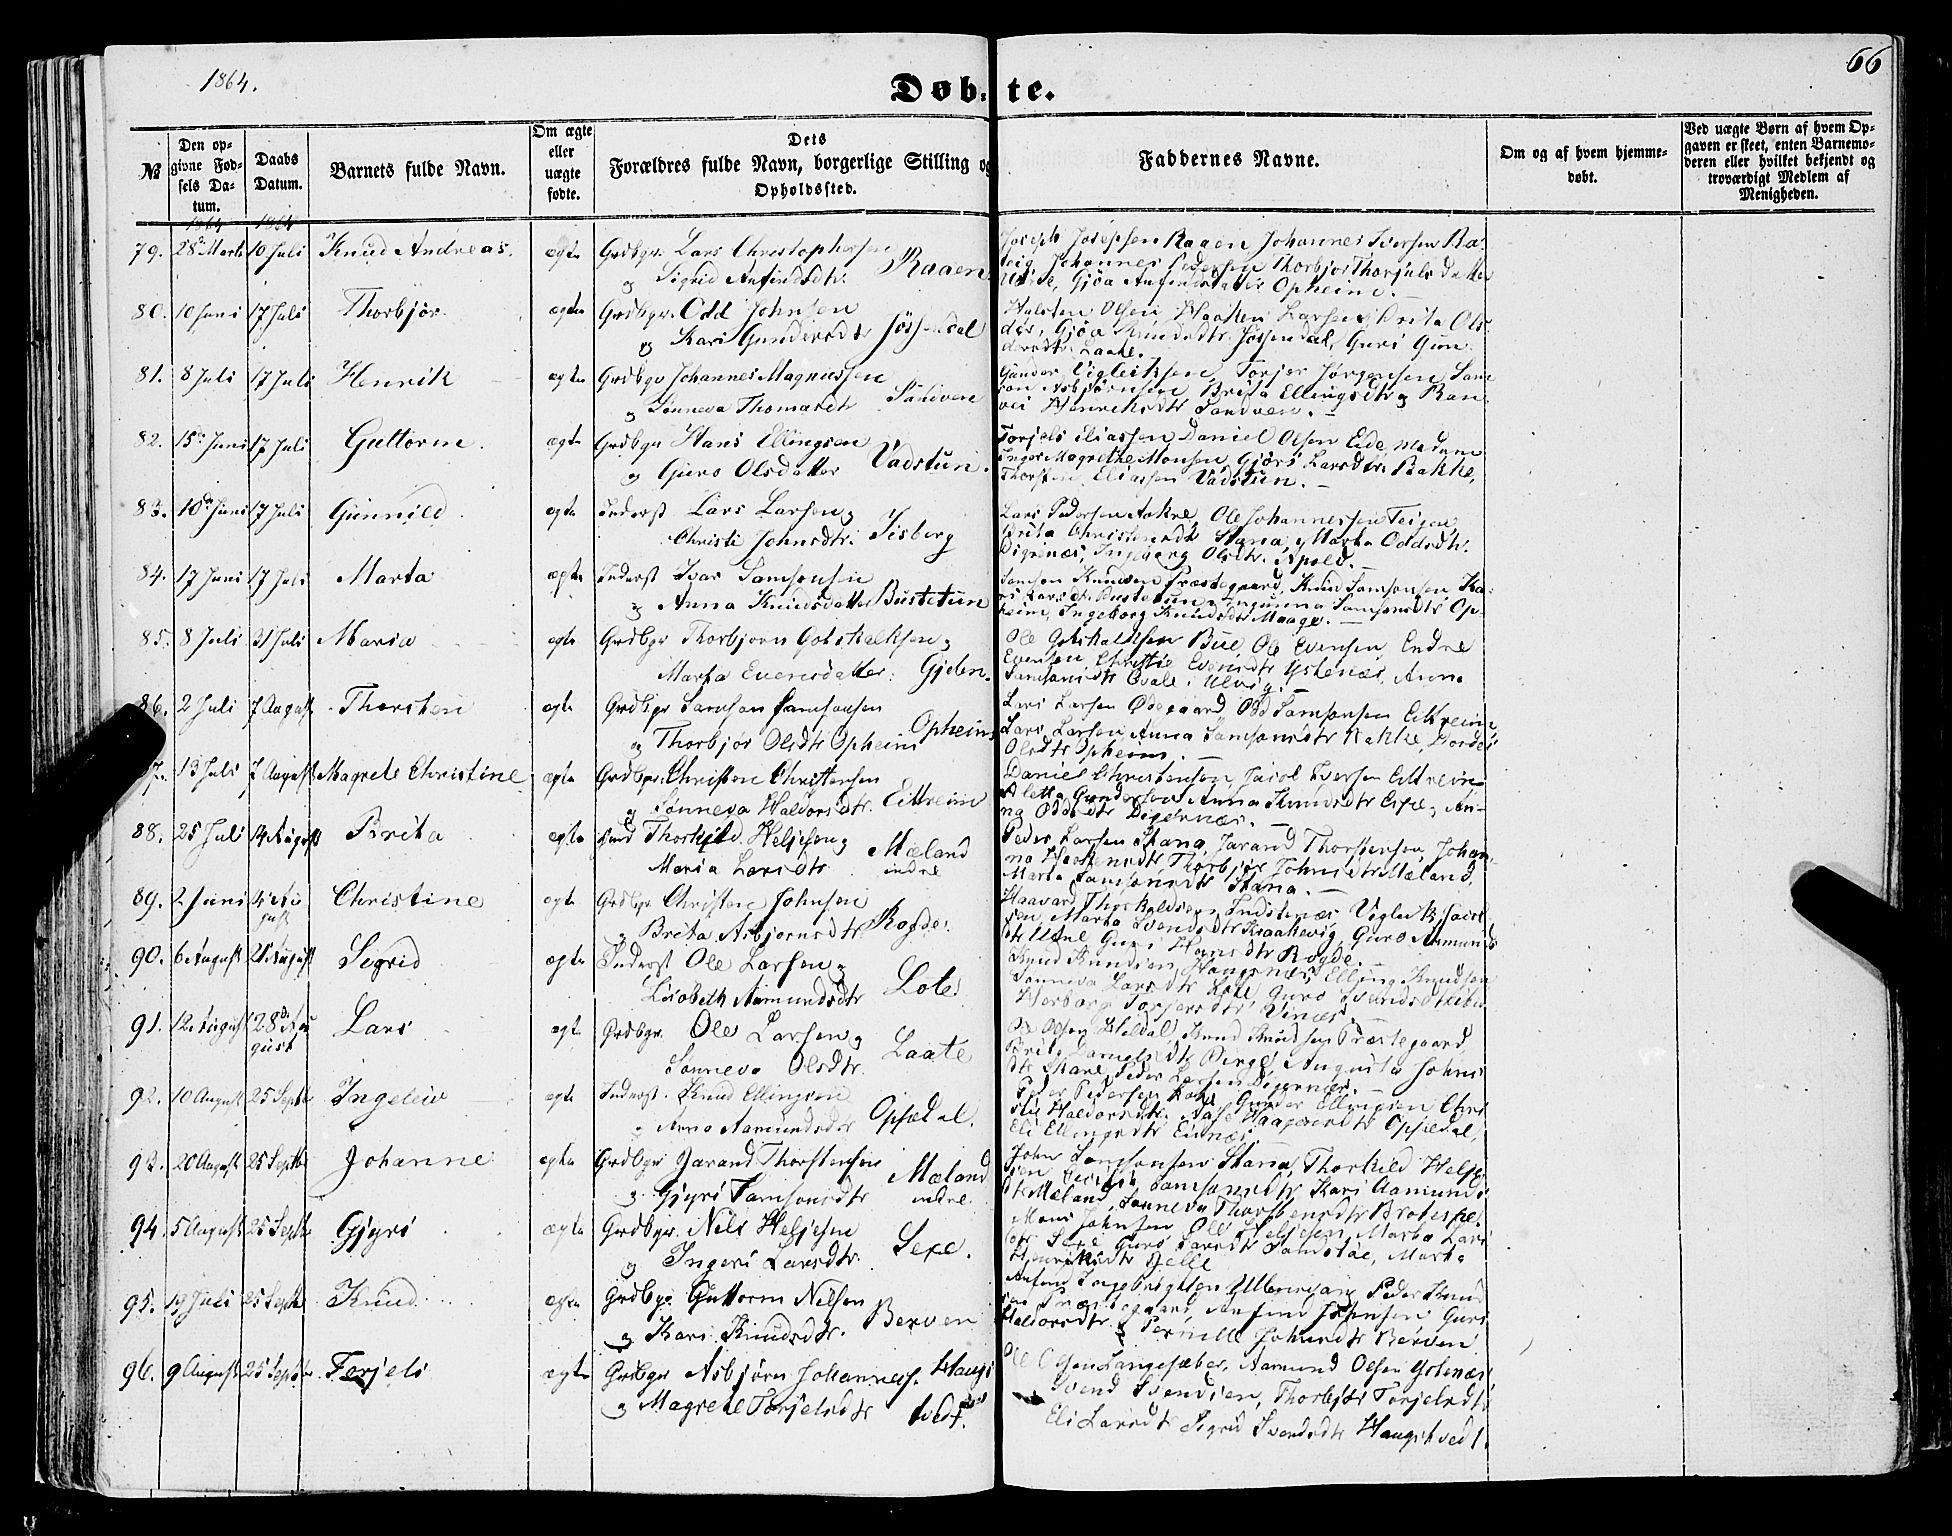 1864.
66
Døb-te.
№
Den op-
givne Fød-
sels Da-
tum.
Daabs
Datum.
Barnets fulde Navn.
Om ægte
eller
uægte
fødte.
Dets
Forældres fulde Navn, borgerlige Stilling og
Opholdssted.
Faddernes Navne.
Om og af hvem hjemme-
døbt.
Ved uægte Børn af hvem Op-
gaven er skeet, enten Barnemo-
deren eller hvilket bekjendt og
troværdigt Medlem af
Menigheden.
1864 1864
79. 28de Marts 10 Juli Knud Andreas. ægte Grdbgr. Lars Christophersen
og Sigrid Anfindsdtr. Raaen
Joseph Josepsen Raaen Johannes Iversen Ra-
Johannes Pedersen Thorbjør Thorjuls datter
Utne, Gjøa Anfindsdatter Opheim.
80. 10 Juni 17 Juli Thorbjør ægte Grdbgr. Odd Johnsen
og Kari Gundersdtr Jøssendal
Halsten Olsen Haaken Larsen, Brita Ols-
dtr, Gjøa Knudsdtr. Jøssendal, Guri Gun-
dersdtr. Laate.
81. 8 Juli 17 Juli Henrik ægte Grdbgr Johannes Magnussen
og Sønneva Thomasdtr Sandven
Gunder Vigleiksen, Torjer Jørgensen, Sam-
son Asbjørnsen, Brita Ellingsdtr og Ran-
vei Henriksdtr Sandven.
82. 15de Juni 17 Juli Guttorm. ægte Grdbgr Hans Ellingsen
og Guro Olsdatter Vadstun.
Torjels Eliassen Daniel Olsen Eide, Madam
Inger Magrethe Monsen, Gjøri Larsdtr. Bakke,
Thorsten Eliassen Vadstun.
83. 10de Juni 17 Juli Gunnild ægte Inderst Lars Larsen og
Christi Johnsdtr. Isberg
Lars Pedersen Aakre, Ole Johannessen Teigen,
Brita Christensdtr Stana, Marta Oddsdtr.
Digrenæs, Ingeborg Olsdtr. Apold.
84. 17 Juni 17 Juli Marta ægte Inderst Ivar Samsonsen
og Anna Knudsdatter Bustetun
Samson Knudsen Præstegaard, Knud Samsonsen, Ka-
ri Larsdtr Bustetun, Ingunna Samsonsdtr Op-
heim, Ingeborg Knudsdtr Maage.
85. 8 Juli 31 Juli Maria ægte Grdbgr Thorbjørn Gotskalksen og
Marta Evensdatter. Gjelen.
Ole Gotskalksen Bue, Ole Evensen, Endre
Evensen, Christie Evensdtr Ystenæs, Anna
Samsonsdtr Qvale i Ulvig.
86. 2 Juli 7 August Thorsten ægte Grdbgr Samson Samsonsen
og Thorbjør Olsdtr Opheim Opheim
Lars Larsen Ødegaard, Odd Samsonsen Eitreim,
Lars Larsen, Anna Samsonsdtr Bakke,
Olsdtr Opheim.
87. 13 Juli 7 August Magrete Christine ægte Grdbgr. Christen Christensen
og Sønneva Haldorsdtr. Eittreim
Daniel Christensen, Jacob Iversen Eittreim
Aletta Gundersen, Anna Knudsdtr Espe, An-
na Oddsdtr Digernæs.
88. 25 Juli 14 August Brita ægte Thorkild Heljesen og
Maria Larsdtr Mæland
indre
Peder Larsen Stana, Jarand Thorstensen, Johan-
na Haakensdtr, Thorbjør Johnsdtr Mæland,
Marta Samsonsdtr Stana.
89. 2 Juni 14 Au
gust Christine ægte Grdbgr Christen Johnsen
Brita Asbjørnsdtr Rogde.
Haavard Thorkildsen Indstenæs, Vigleik Jacob-
sen, Marta Svendsdtr Kraakevig, Guro Aamunds
dtr Utne Guri Hansdtr Rogde.
90. 6 August 21 August Sigrid ægte Inderst Ole Larsen og
Lisabeth Aamundsdtr Lote.
Knud Knudsen Haugenæs, Elling Knudsen
Sønneva Larsdtr Guro Svendsdtr
Herborg Torjersdtr Vinæs.
91. 12 August 28de Au
gust Lars ægte Grdbgr. Ole Larsen og
Sønneva Olsdtr. Laate
Ole Olsen Hildal, Knud Knudsen Præstegaard,
Brita Danielsdtr Berge, Augusta Johns-
dtr Mare, Peder Larsen Digernæs.
92. 10 August 25 Septbr Ingeleiv ægte Inderst. Knud Ellingsen
Anna Aamundsdtr Opsædal.
Peder Pedersen Gunder Ellingsen Chri-
stie Haldorsdtr. Aase Haagensdtr Opsædal,
Eli Ellingsdtr Einæs.
93. 20 August 25 Septbr Johanne ægte Grdbgr Jarand Thorstensen
og Gjyri Samsonsdtr Mæland
indre
John Samsonsen Stana, Thorkild Helje-
sen Samsonsdtr, Kari Aamunds
dtr Mæland, Sønneva Thorstensdtr Brotespe.
94. 5 August 25 Septbr Gjyri ægte Grdbgr. Nils Heljesen
og Ingeri Larsdtr. Sexe.
Mons Johnsen Ole Heljesen, Marta Lars-
dtr Sexe Guro Larsdtr Sandstøe, Marta
Henriksdtr Jelle
95. 19 Juli 25 Septbr Knud ægte Grdbgr. Guttorm Nilsen
og Kari Knudsdtr. Berven
Anfind Ingebrigtsen Ullensvang Peder Knud-
sen Præstegaard, Anfind Johnsen Guri
Haldorsdtr. & Pernille Johnsdtr Berven
96. 9 August 25 Septbr Torjels ægte Grdbgr Asbjørn Johannes. Haugs
og Magrete Torjelsdtr tvedt.
Ole Olsen Langesæter, Aamund Olsen Ystenæs
Svend Svendsen, Thorbjør Torjelsdtr
Eli Larsdtr Sigrid Svendsdtr Haugstvedt.